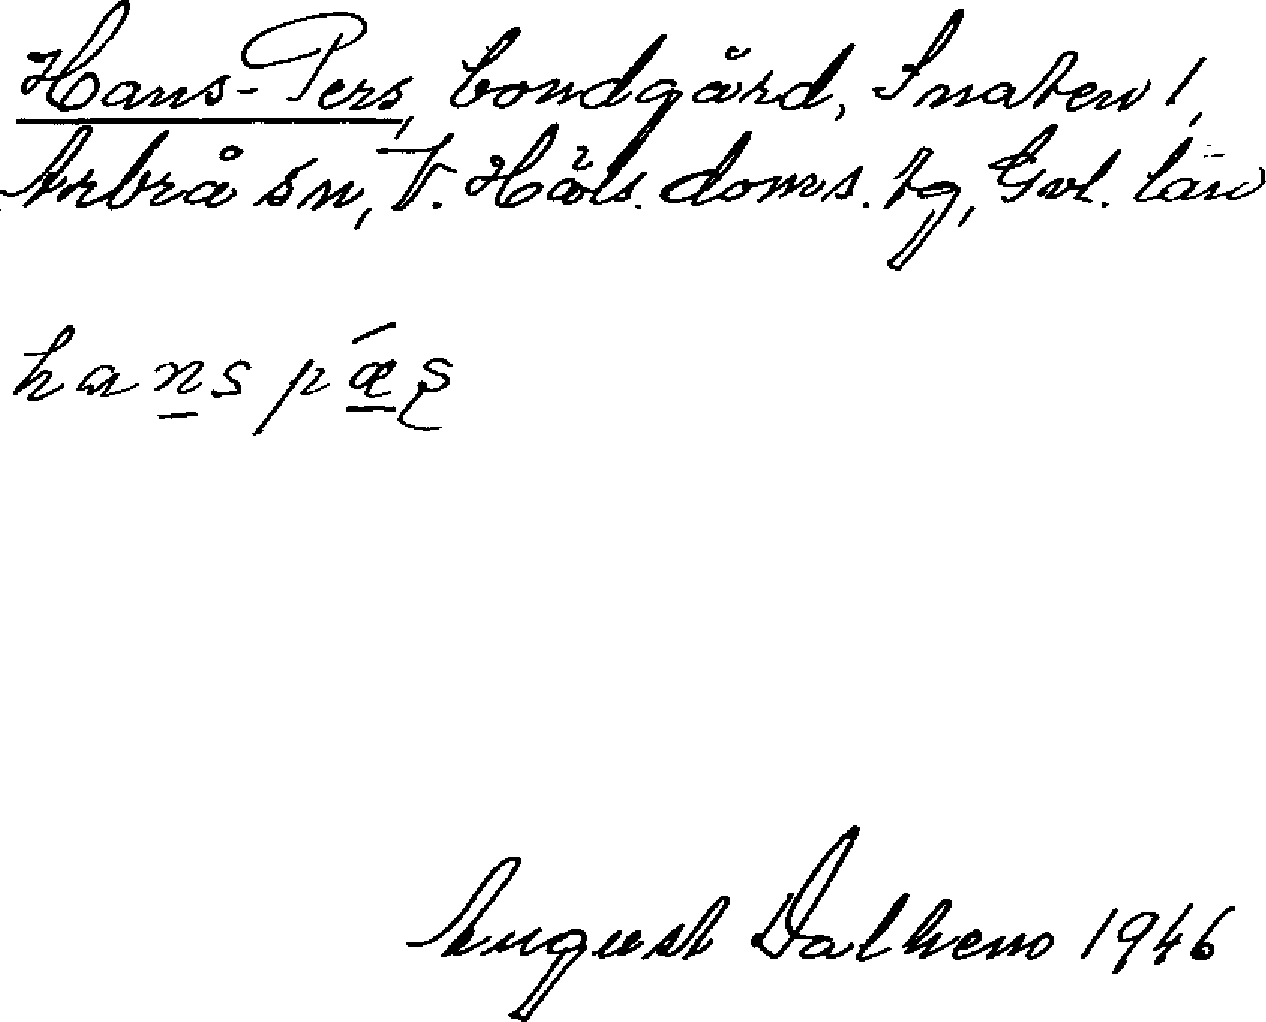 Hans-Pers, bondgård, Snaten 1,
Arbrå sn, V. Häls. doms. tg, Gvl. län
hans pǽʂ
August Dalheno 1946